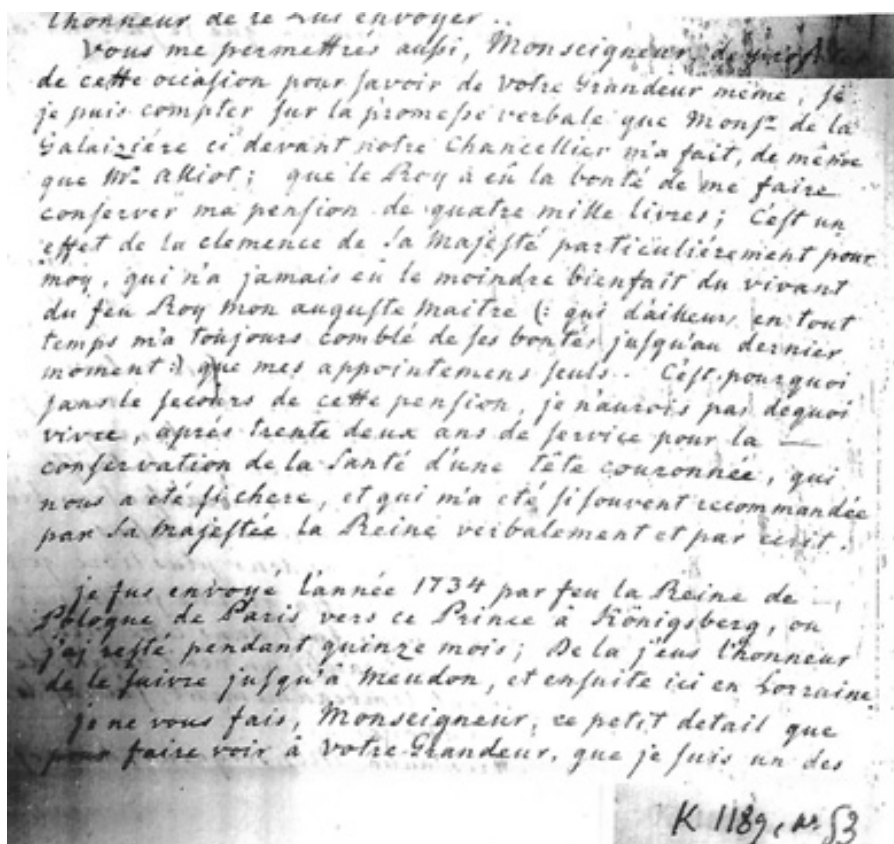 l'honneur de le lus envoyer..
Vous me permettrés aussi, Monseigneur, de profiter
de cette occasion pour savoir de Votre Grandeur même, si
je puis compter sur la promesse verbale que Monsr. de la
Galaiziére ci devant notre Chancellier m'a fait, de même
que Mr. Alliot; que le Roy à eû la bonté de me faire
conserver ma pension de quatre mille livres; C'est un
effet de la clemence de Sa Majesté particuliérement pour
moy, qui n'a jamais eû le moindre bienfait du vivant
du feu Roy mon auguste Maitre (: qui d'ailleurs en tout
temps m'a toujours comblé de ses bontés jusqu'au dernier
moment :) que mes appointemens seuls.. C'est pourquoi
sans le secours de cette pension, je n'aurois pas dequoi
vivre, aprés trente deux ans de service pour la —
conservation de la Santé d'une Tête couronnée, qui
nous a eté si chere, et qui m'a eté si souvent recommandée
par Sa Majestée la Reine verbalement et par ecrit.
je fus envoyé l'année 1734 par feu la Reine de —
Pologne de Paris vers ce Prince à Königsberg, ou
j'aj resté pendant quinze mois; De la j'eus l'honneur
de le suivre jusqu'à Meudon, et ensuite ici en Lorraine
je ne vous fais, Monseigneur, ce petit detail que
pour faire voir à Votre Grandeur, que je suis un des
K 1189, nr. 53